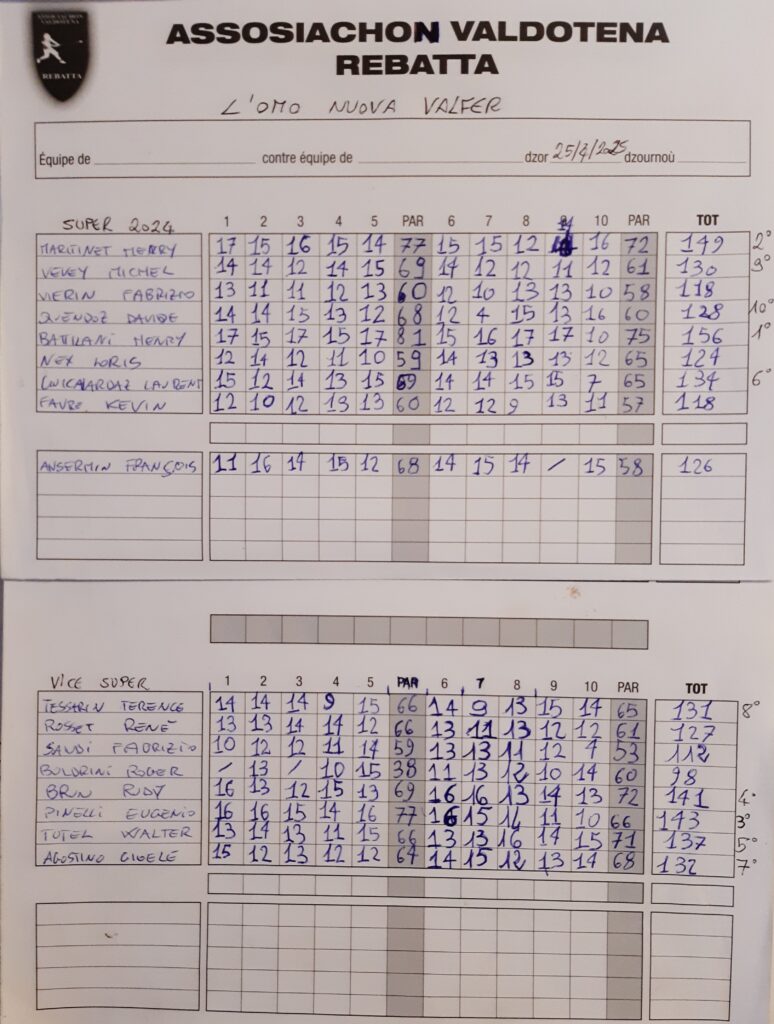 ASSOSIACHON
VALDOTENA
REBATTA
ASSOSIACHON VALDOTENA
REBATTA
L'OMO NUOVA VALFER
Équipe de contre équipe de dzor 25/4/2025 dzournoù
SUPER 2024 1 2 3 4 5 PAR 6 7 8 9 10 PAR TOT
MARTINET HENRY 17 15 16 15 14 77 15 15 12 14 16 72 149 2°
VEVEY MICHEL 14 14 12 14 15 69 14 12 12 11 12 61 130 9°
VIERIN FABRIZIO 13 11 11 12 13 60 12 10 13 13 10 58 118
QUENDOZ DAVIDE 14 14 15 13 12 68 12 4 15 13 16 60 128 10°
BATTRANI HENRY 17 15 17 15 17 81 15 16 17 17 10 75 156 1°
NEX LORIS 12 14 12 11 10 59 14 13 13 13 12 65 124
LAURENT 15 12 14 13 15 69 14 14 15 15 7 65 134 6°
FAVRE KEVIN 12 10 12 13 13 60 12 12 9 13 11 57 118
ANSERMIN FRANÇOIS 11 16 14 15 12 68 14 15 14 / 15 58 126
VICE SUPER 1 2 3 4 5 PAR 6 7 8 9 10 PAR TOT
TESSARIN TERENCE 14 14 14 9 15 66 14 9 13 15 14 65 131 8°
ROSSET RENÉ 13 13 14 14 12 66 13 11 13 12 12 61 127
SAUDI FABRIZIO 10 12 12 11 14 59 13 13 11 12 4 53 112
BOLDRINI ROGER / 13 / 10 15 38 11 13 12 10 14 60 98
BRUN RUDY 16 13 12 15 13 69 16 16 13 14 13 72 141 4°
PINELLI EUGENIO 16 16 15 14 16 77 16 15 14 11 10 66 143 3°
TUTEL WALTER 13 14 13 11 15 66 13 13 16 14 15 71 137 5°
AGOSTINO GIOELE 15 12 13 12 12 64 14 15 12 13 14 68 132 7°